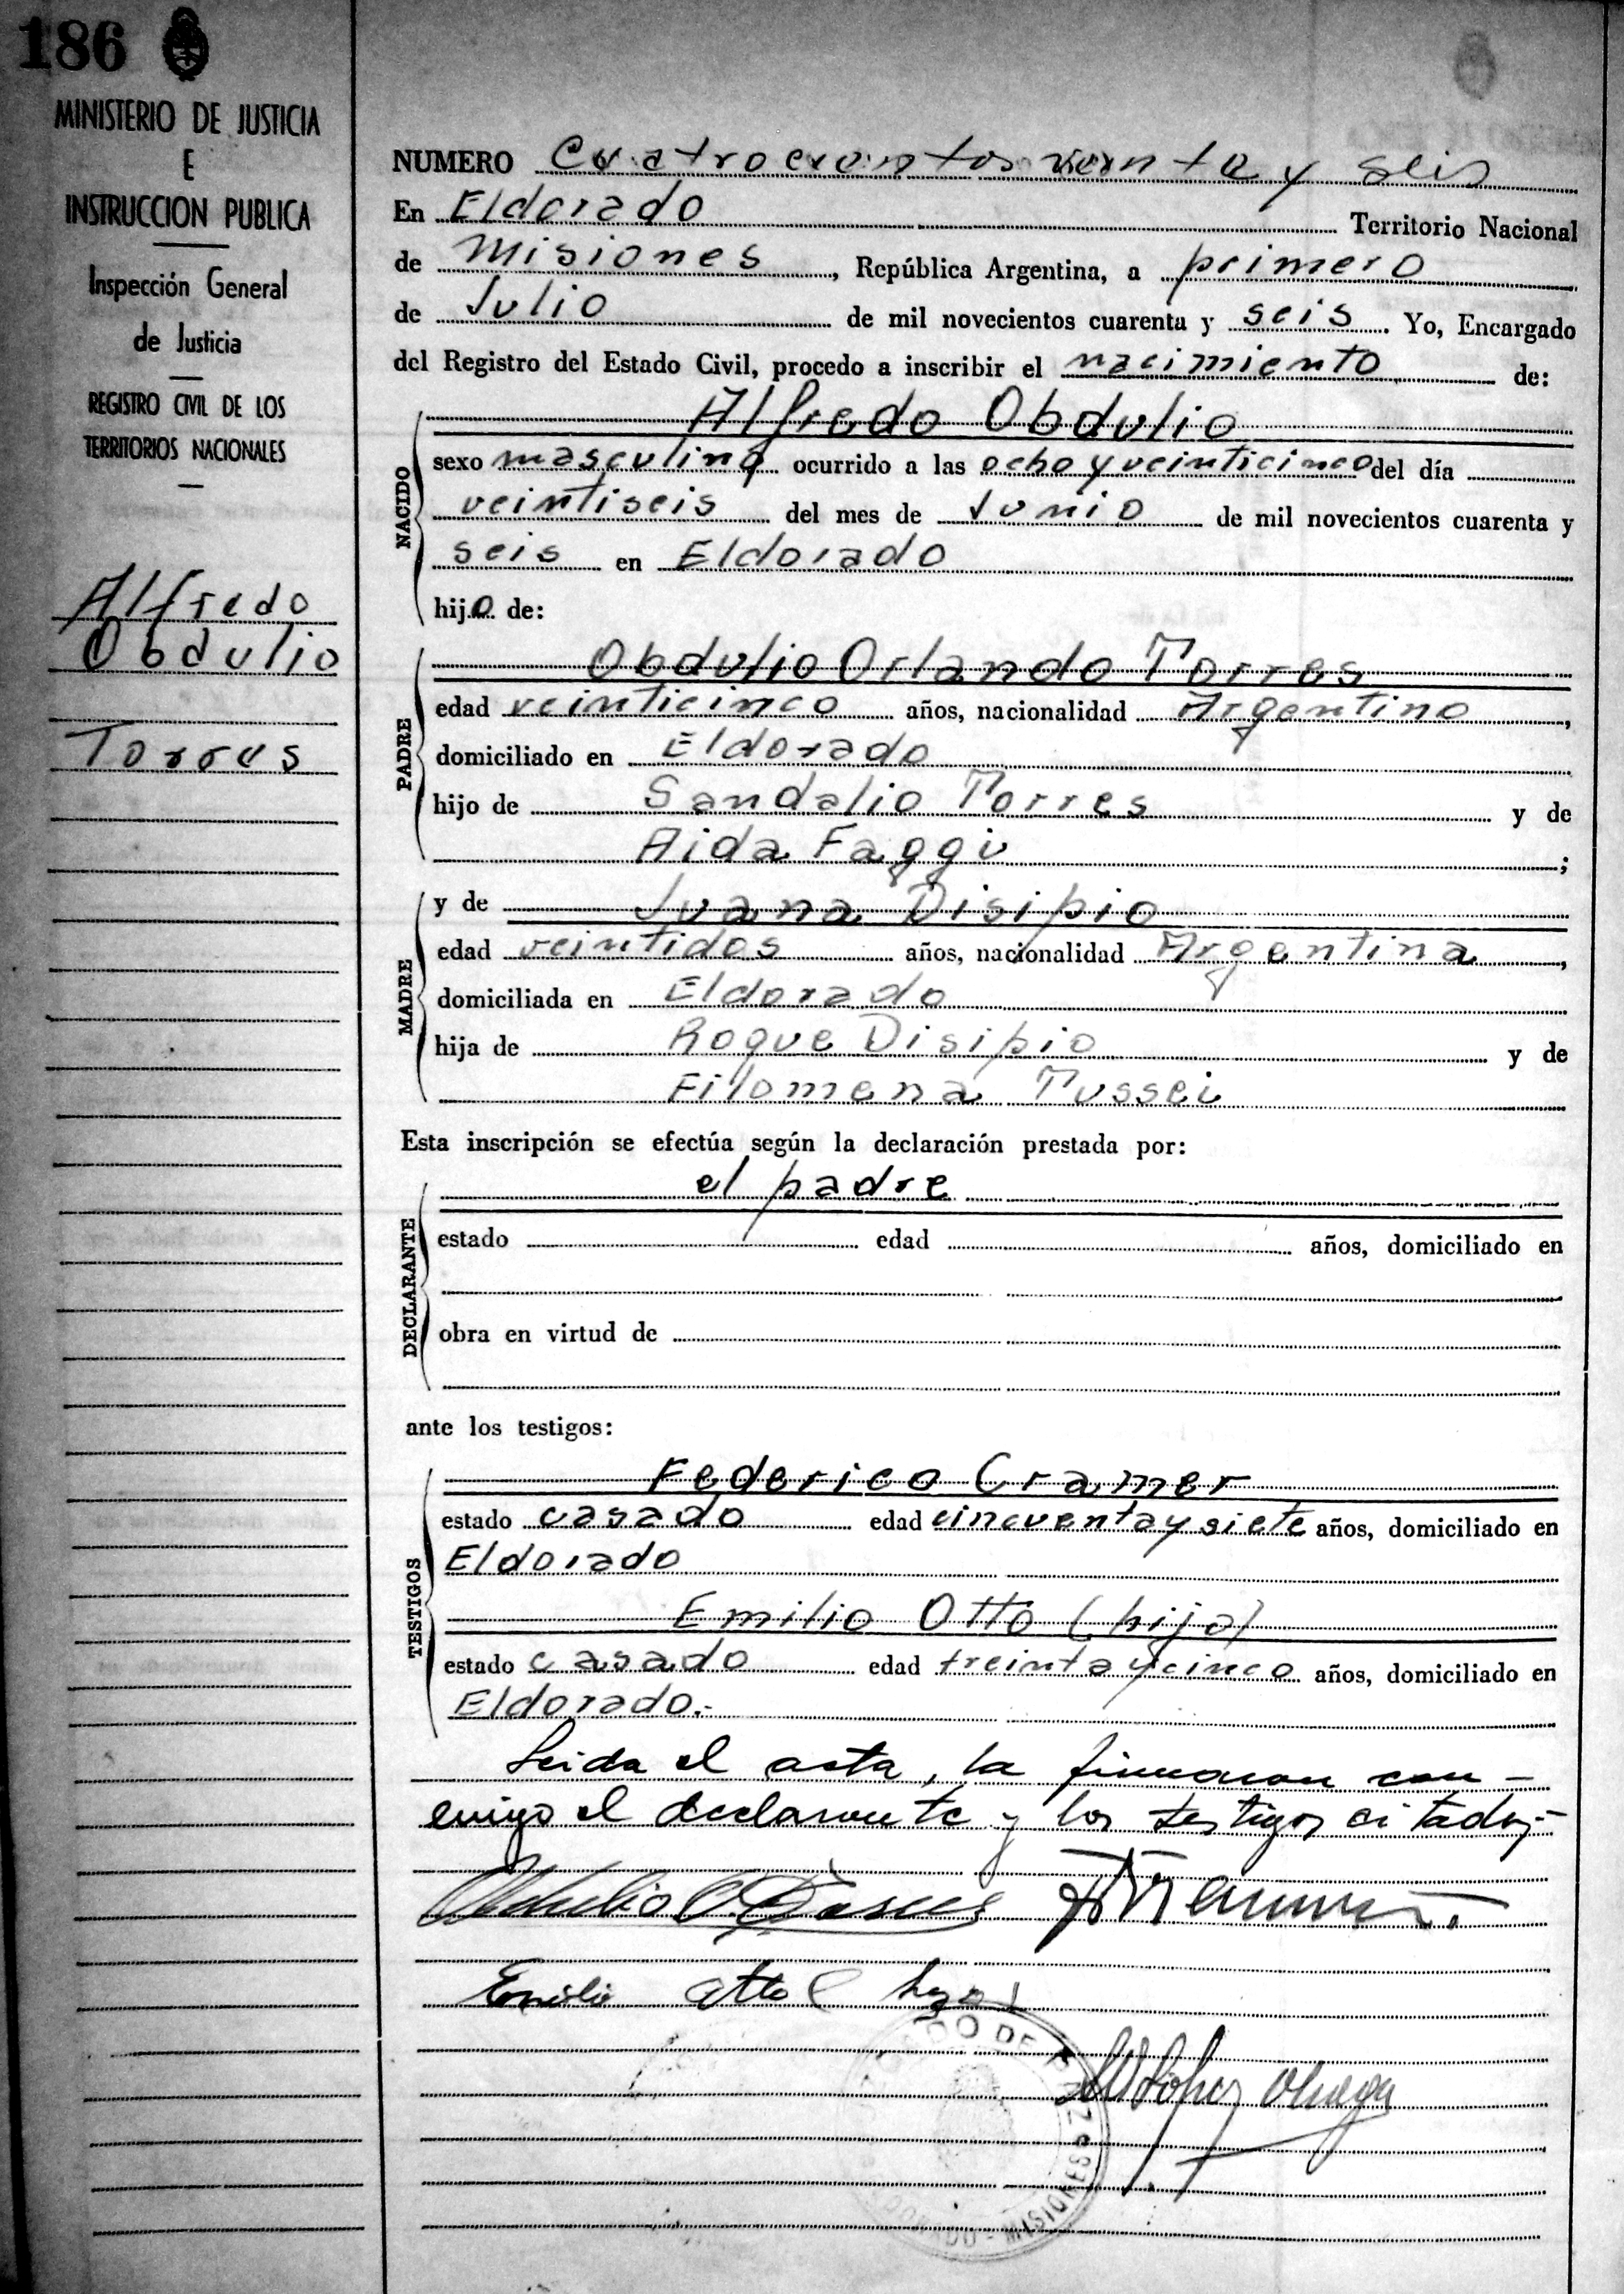 186
MINISTERIO DE JUSTICIA
E
INSTRUCCION PUBLICA
Inspección General
de Justicia
REGISTRO CIVIL DE LOS
TERRITORIOS NACIONALES
Alfredo
Obdulio
Torres
NUMERO Cuatrocientos y seis
En Eldorado Territorio Nacional
de Misiones, República Argentina, a primero
de Julio de mil novecientos cuarenta y seis. Yo, Encargado
del Registro del Estado Civil, procedo a inscribir el nacimiento de:
NACIDO
Alfredo Obdulio
sexo masculino ocurrido a las ocho y veinticinco del día
veintiseis del mes de Junio de mil novecientos cuarenta y
seis en Eldorado
hijo de:
PADRE
Obdulio Orlando Torres
edad veinticinco años, nacionalidad Argentino,
domiciliado en Eldorado
hijo de Sandalio Torres y de
Aida Faggi;
MADRE
y de Juana Disipio
edad veintidos años, nacionalidad Argentina,
domiciliada en Eldorado
hija de Roque Disipio y de
Filomena Tussei
Esta inscripción se efectúa según la declaración prestada por:
DECLARANTE
el padre
estado edad años, domiciliado en
obra en virtud de
ante los testigos:
TESTIGOS
Federico Cramer
estado casado edad cincuenta y siete años, domiciliado en
Eldorado
Emilio Otto (hijo)
estado casado edad treinta y cinco años, domiciliado en
Eldorado.-
Leida el acta, la firmaron con-
migo el declarante y los testigos citados.-
Obdulio O. Torres
Emilio Otto hijo
López
MISIONES